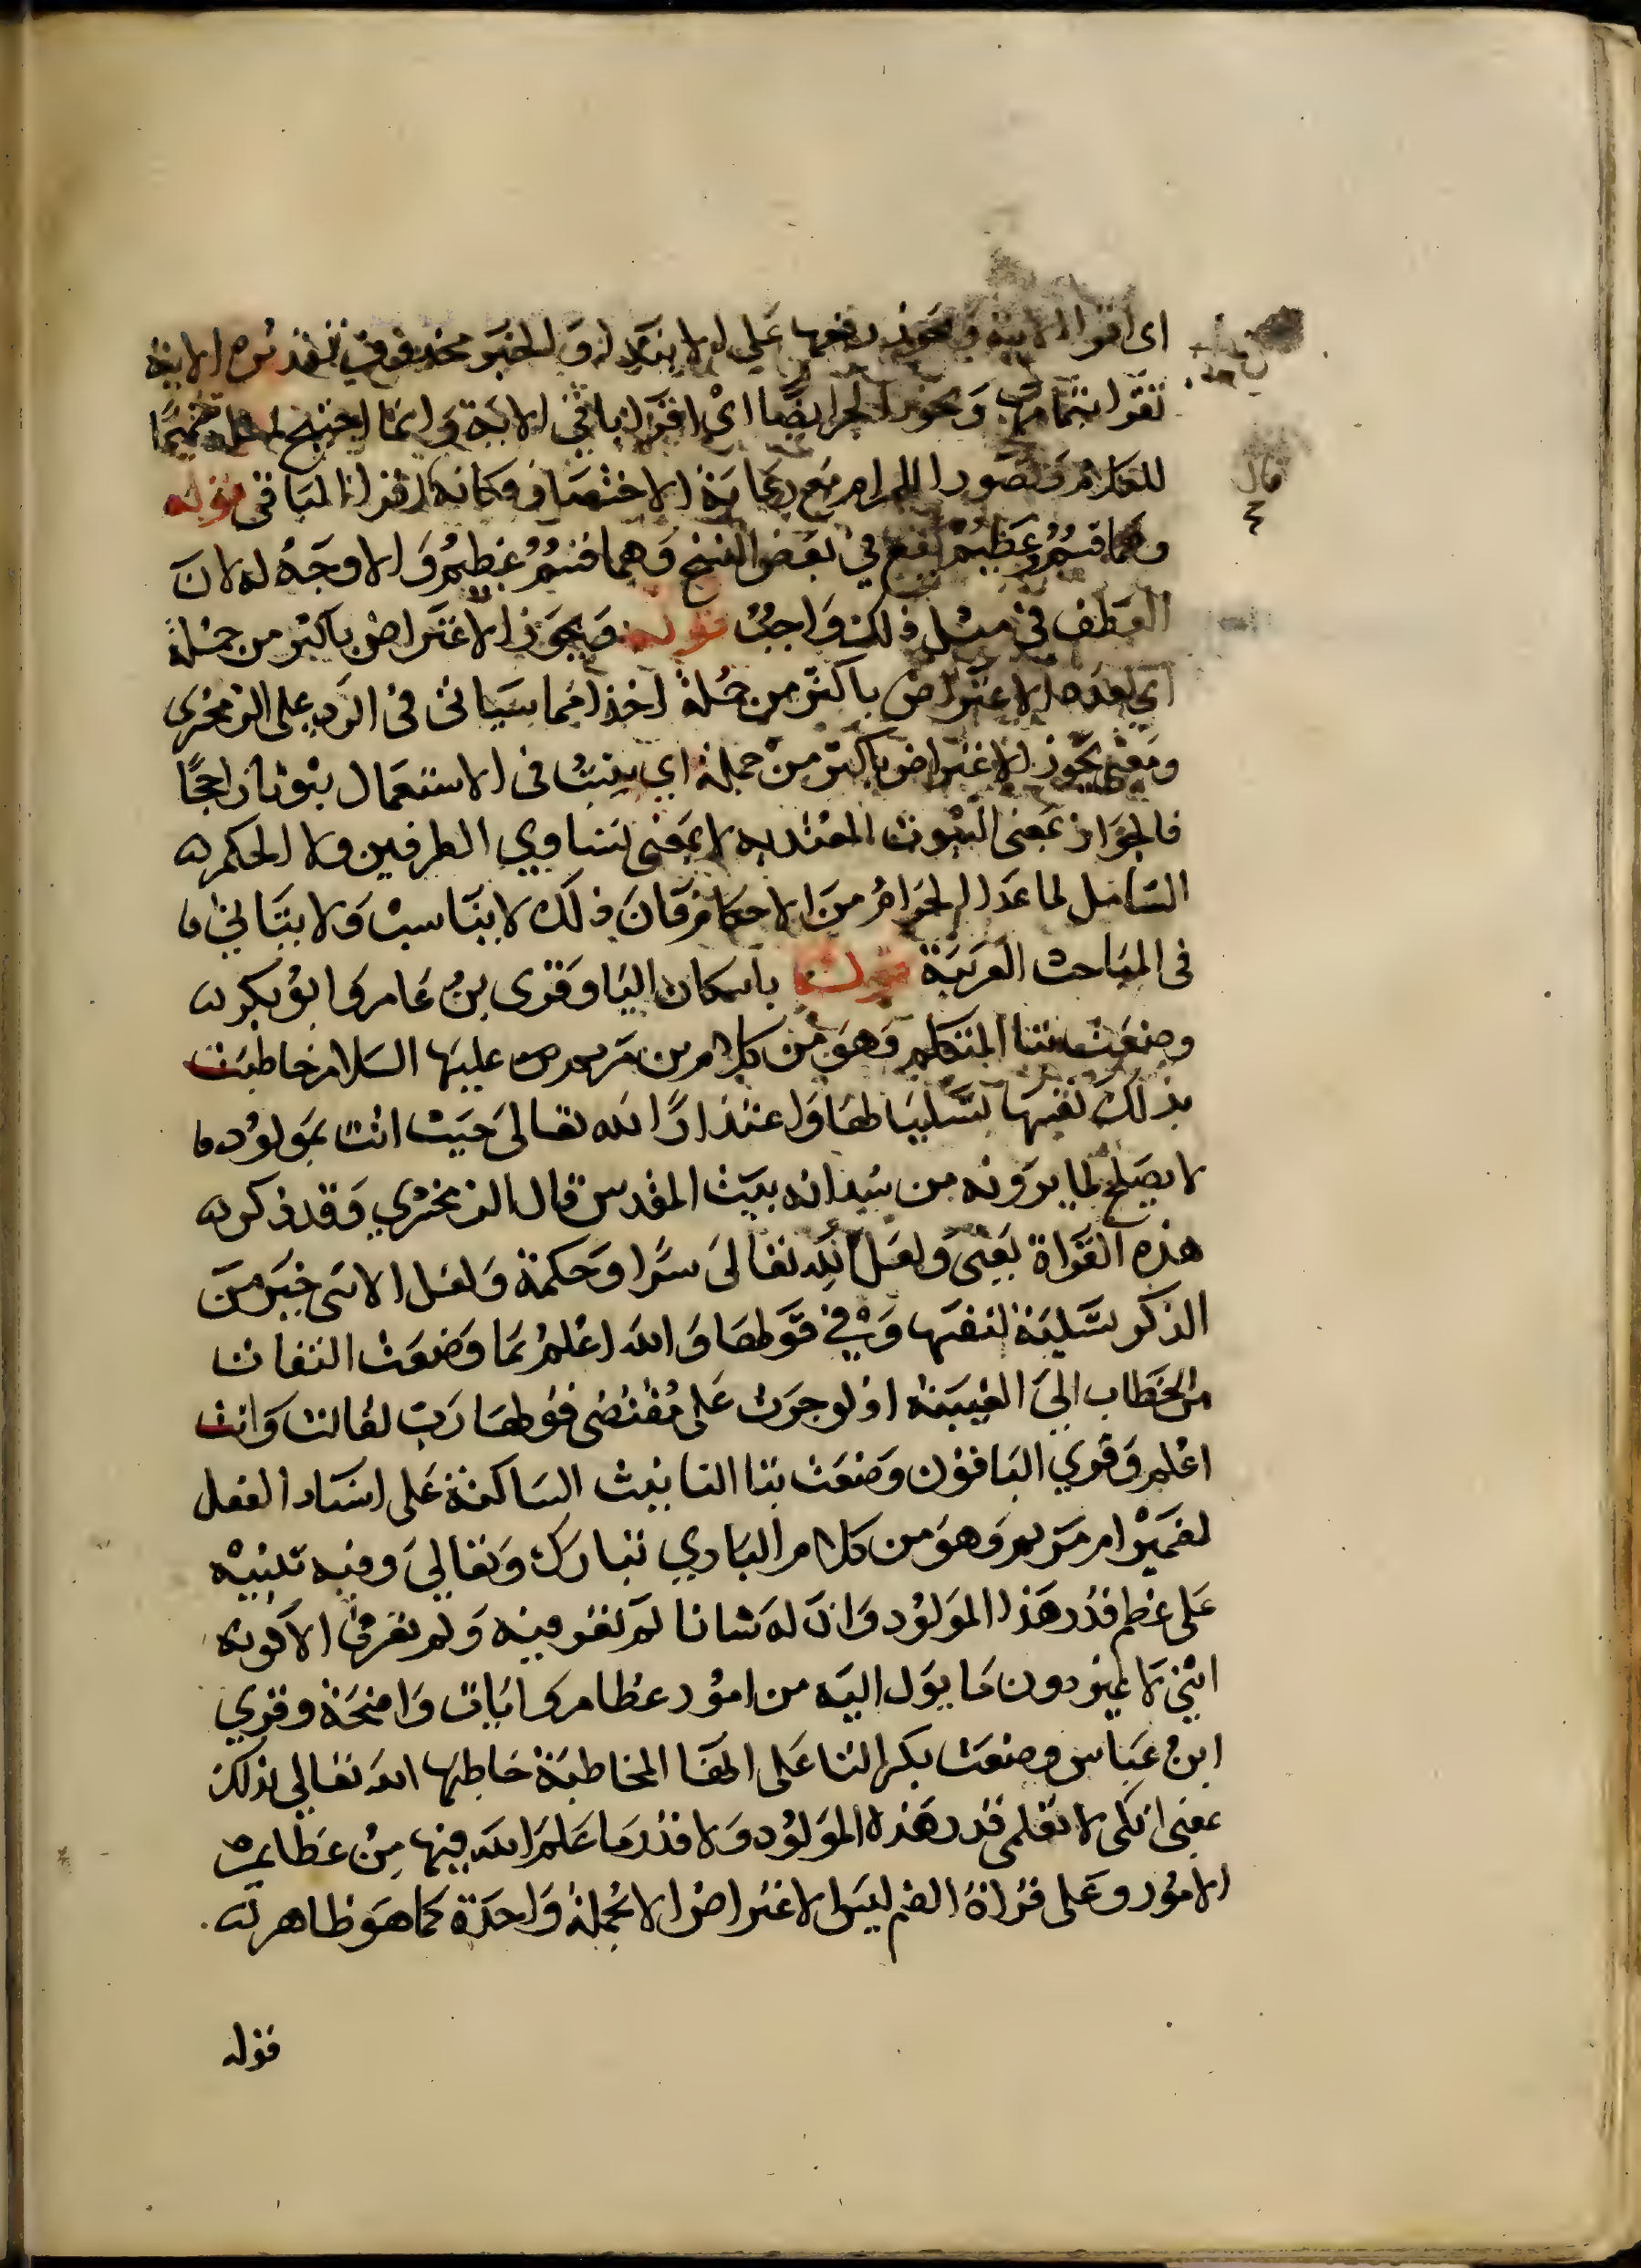 اى اقرا الاية ويجوز رفعها على الابتدا والخبر محذوف تقديره الاية
تقرا بتمامها ويجوز الجر ايضا اى اقرا باقى الاية وانما احتيج
للكلام وتصور المرام مع رعاية الاختصار فكانه اقرا الباقى قوله
وهما قسم عظيم وقع فى بعض النسخ وهما قسم عظيم والاوجه له لان
العطف فى مثل ذلك واجب قوله ويجوز الاعتراض باكثر من جملة
اي بعده الاعتراض باكثر من جملة اخذا مما سياتى فى الرد على الزمخشرى
ومعنى يجوز الاعتراض باكثر من جملة اي يثبت فى الاستعمال ثبوتا راجحا
فالجواز بمعنى الثبوت المعتد به لا بمعنى تساوي الطرفين ولا الحكم
الشامل لما عدا الحرام من الاحكام فان ذلك لا يناسب ولا يتاتى
فى المباحث العربية قوله باسكان اليا وقرى بن عامر وابو بكر
وضعت بتا المتكلم وهو من كلام من مريم عليها السلام خاطبت
بذلك نفسها تسليا لها واعتذارا لله تعالى حيث اتت بمولود
لا يصلح لما يرونه من سدانه بيت المقدس قال الزمخشري وقد ذكر
هذه القراة يعنى ولعل لله تعالى سرا وحكمة ولعل الانثى خير من
الذكر تسلية لنفسها وفي قولها والله اعلم بما وضعت التفات
من الخطاب الى الغيبة اذ لو جرت على مقتضى قولها رب لقالت وانت
اعلم وقري الباقون وضعت بتا التانيث الساكنة على اسناد الفعل
لضمير ام مريم وهو من كلام الباري تبارك وتعالى وفيه تنبيه
على عظم قدر هذا المولود وان له شانا لم تعرفيه ولم تعرفى الا كونه
انثى لا غير دون ما يول اليه من امور عظام وايات واضحة وقري
ابن عباس وضعت بكسر التا على انها المخاطبة خاطبها الله تعالى بذلك
بمعنى انكى لا تعلمى قدر هذه المولود ولا قدر ما علم الله فيها من عظايم
الامور وعلى قراة الضم ليس الاعتراض الا بجملة واحدة كما هو ظاهر
قوله
قال